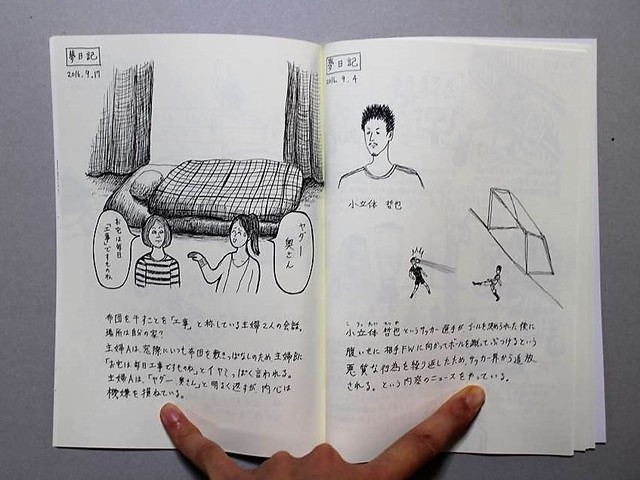 夢日記
2016.9.17
お宅は毎日
「工事」ですものね
ヤダー
奥さん
布団を干すことを「工事」と称している主婦2人の会話。
場所は自分の家?
主婦Aは、窓際にいつも布団を敷きっぱなしのため主婦Bに
「お宅は毎日工事ですものね」とイヤミっぽく言われる。
主婦Aは、「ヤダー、奥さん」と明るく返すが、内心は
機嫌を損ねている。
夢日記
2016.9.4
小立体 哲也
小立体 哲也というサッカー選手が、ゴールを決められた後に
腹いせに相手FWに向かってボールを蹴ってぶつけるという
悪質な行為を繰り返したため、サッカー界から追放
される。という内容のニュースをやっている。